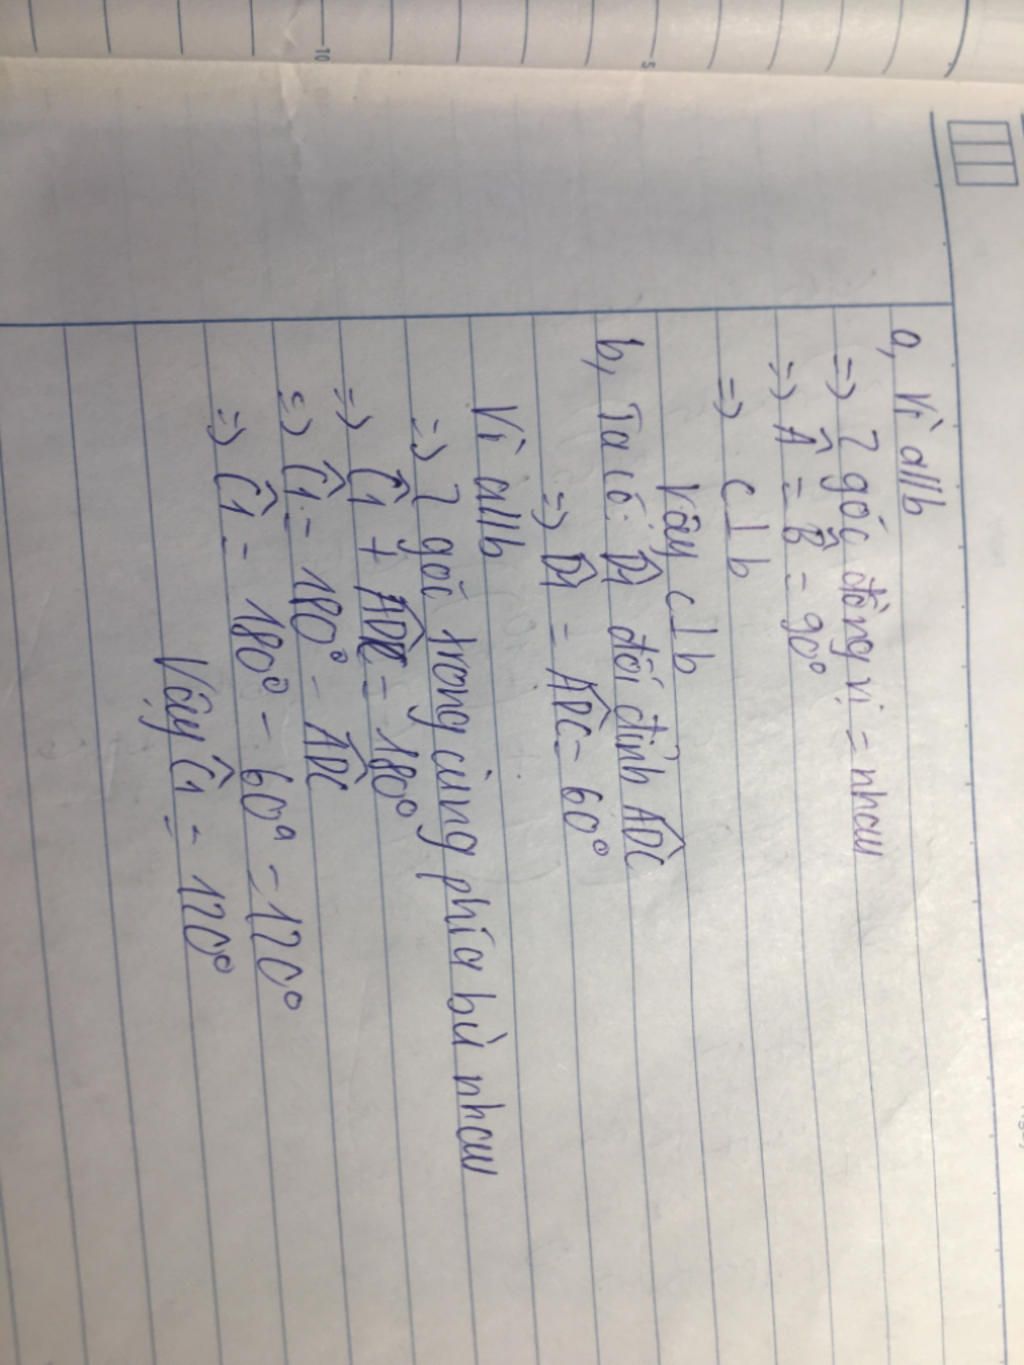 a, Vì a//b
=> 2 góc đồng vị = nhau
=> Â = B̂ = 90°
=> c⊥b
Vậy c⊥b
b, Ta có: D̂1 đối đỉnh ADC̑
=> D̂1 = ADC̑ = 60°
Vì a//b
=> 2 góc trong cùng phía bù nhau
=> Ĉ1 + ADC̑ = 180°
=> Ĉ1 = 180° - ADC̑
=> Ĉ1 = 180° - 60° = 120°
Vậy Ĉ1 = 120°
10
5